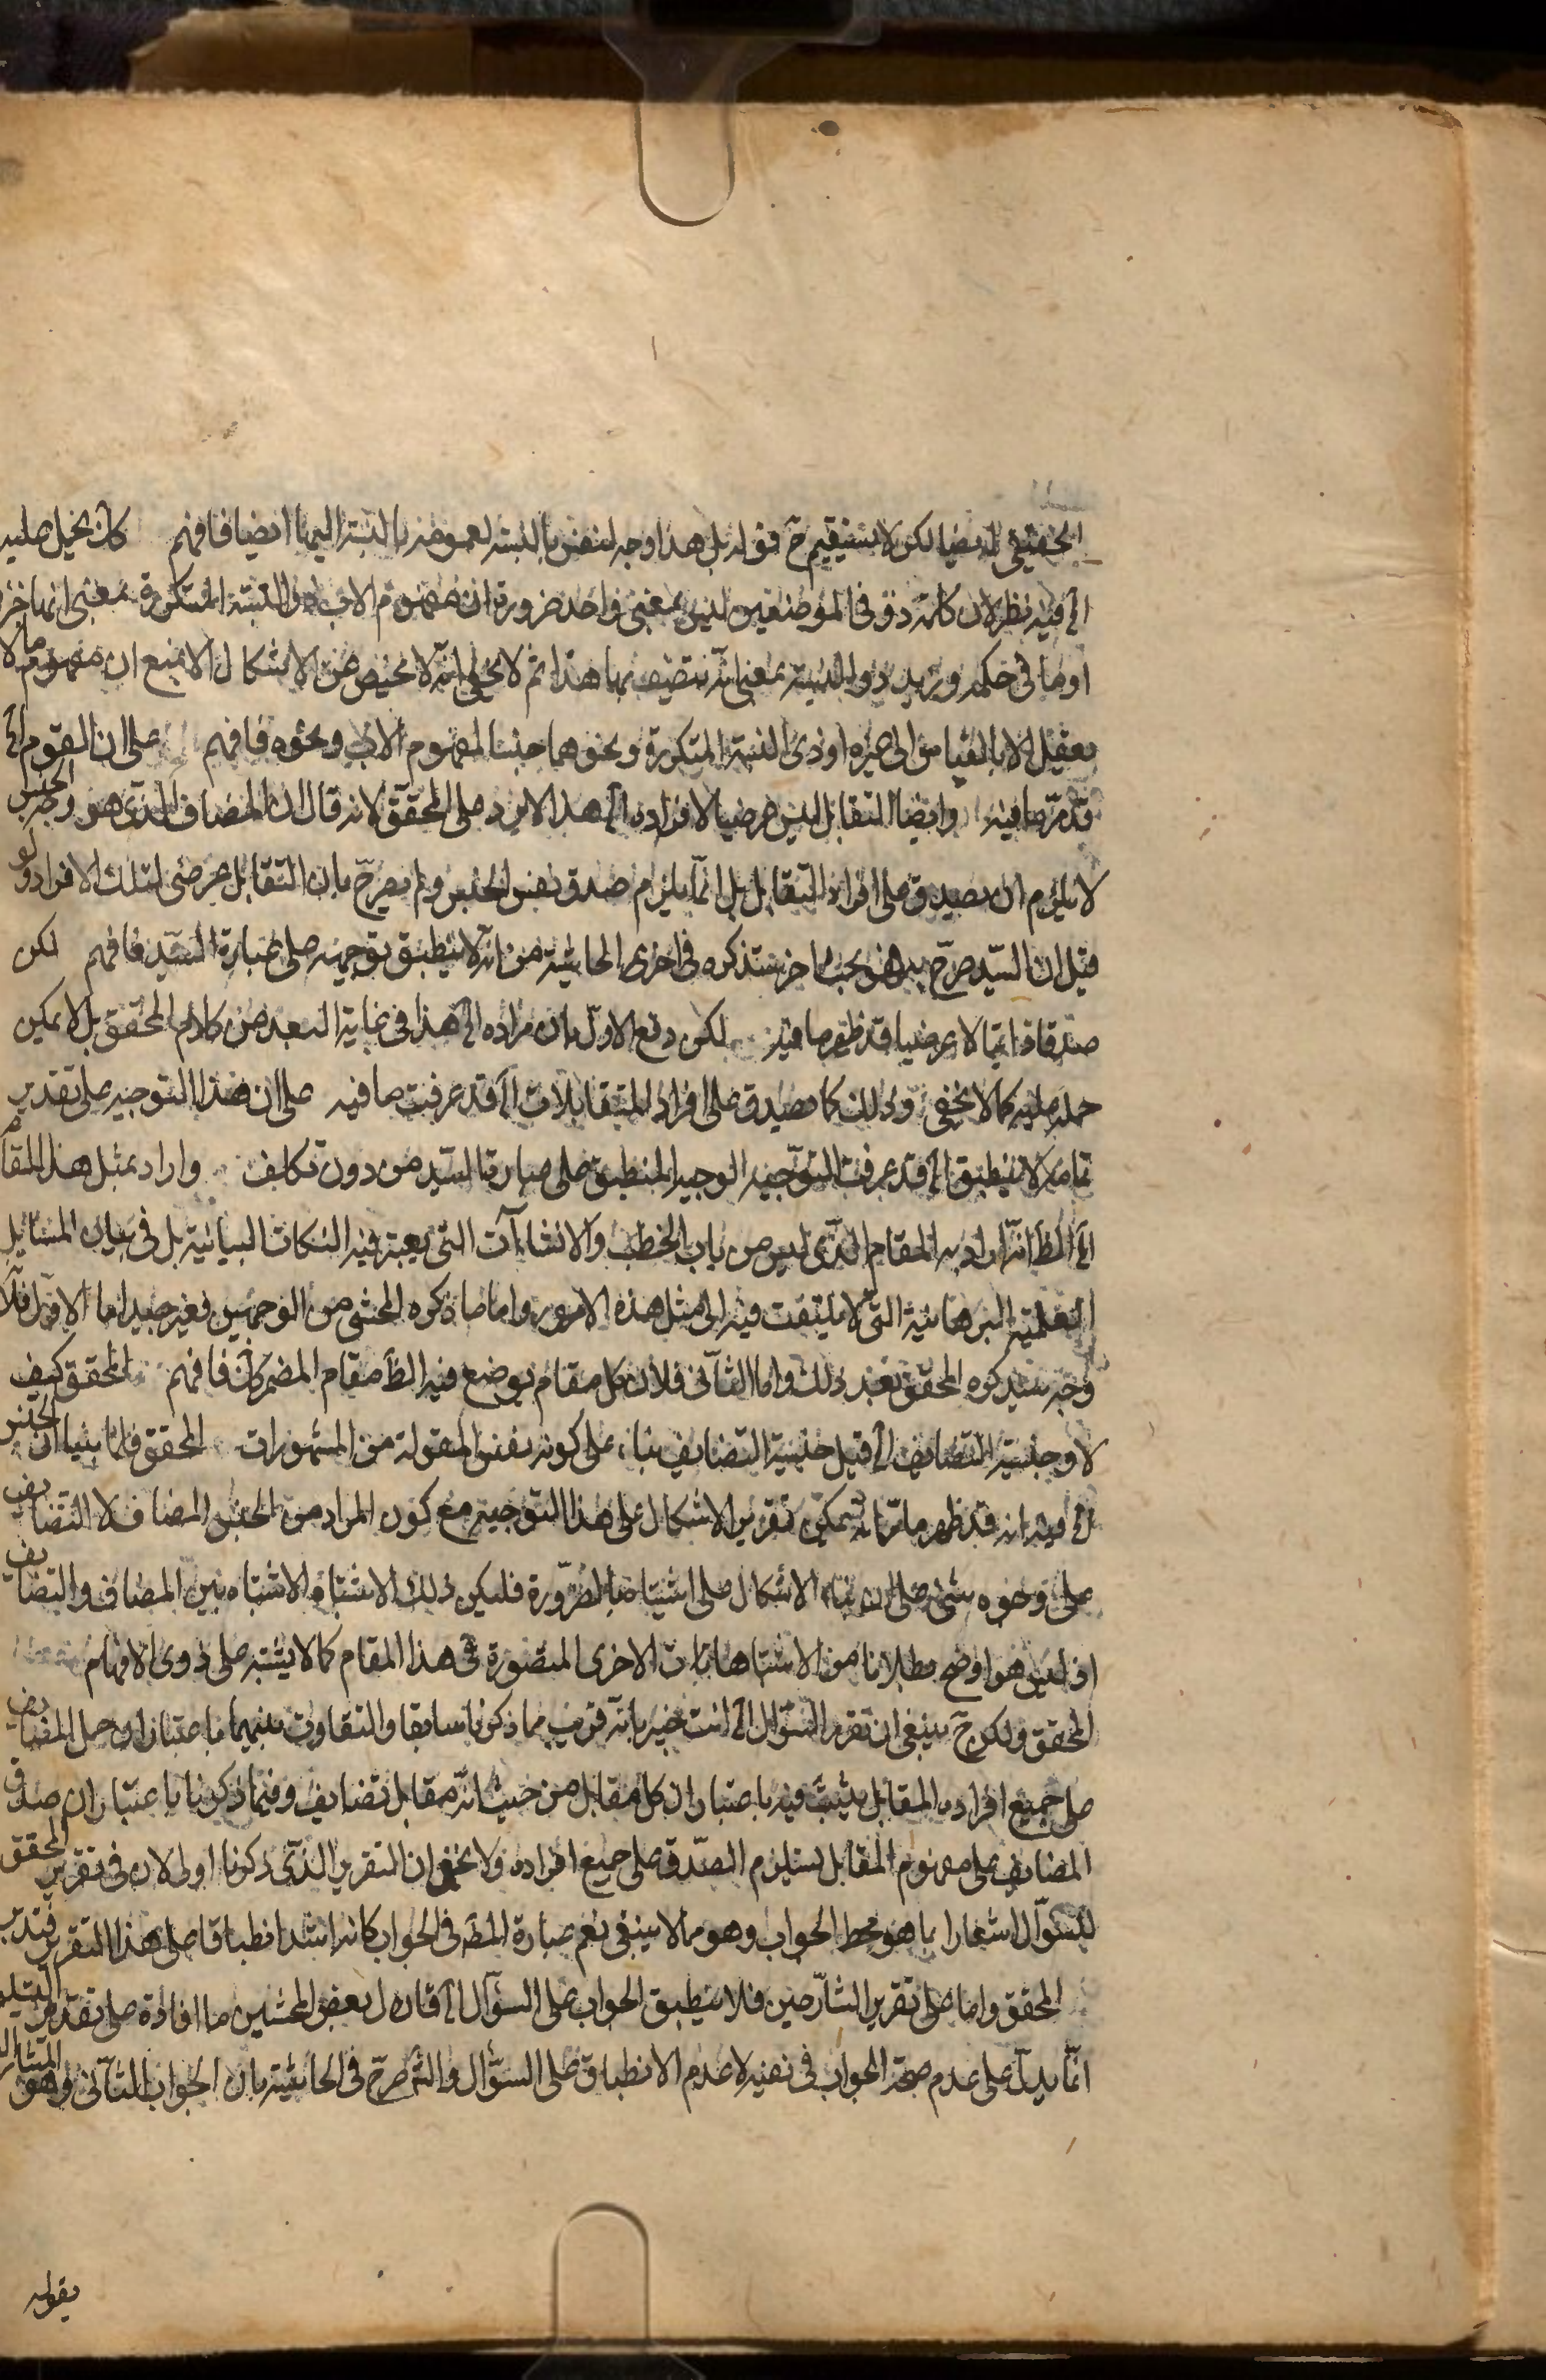 الحقيقي ايضا لكن لا يستقيم ح قوله بل هذا وجه لنفس بالنسبة لعمومه بالنسبة اليها ايضا فافهم كان يخيل عليه
الخ فيه نظر لان كلمة ذو في الموضعين ليس بمعنى واحد ضرورة ان مفهوم الاب ذو النسبة المتكررة بمعنى انها جزء
او ما في حكمه وزيد ذو النسبة بمعنى انه متصف بها هذا ثم لا يخفى انه لا محيص من الاشكال الا بمنع ان مفهوم ما لا
يعقل الا بالقياس الى غيره او ذي النسبة المتكررة ونحوهما جنسا لمفهوم الاب ونحوه فافهم على ان القوم الخ
قد مر ما فيه وايضا التقابل ليس عرضيا لافراده الخ هذا لا يرد على المحقق لانه قال ان المضاف الذي هو وجه الجنس
لا يلزم ان يصدق على افراد التقابل بل انما يلزم صدق نفس الجنس ولم يصرح بان التقابل عرضي لتلك الافراد ولو
قيل ان السيد صرح به فهو بحث اخر ستذكره في اخرى الحاشية من انه لا ينطبق توجيهه على عبارة السيد فافهم لكن
صدقا ذاتيا لا عرضيا قد ظهر ما فيه لكن دفع الاول بان مراده الخ هذا في غاية البعد من كلام المحقق بل لا يمكن
حمله عليه كما لا يخفى وذلك كما يصدق على افراد المتقابلات الخ قد عرفت ما فيه على ان هذا التوجيه على تقدير
تمامه لا ينطبق الخ قد عرفت التوجيه الوجيه المنطبق على عبارة السيد من دون تكلف واراد بمثل هذا المقام
الخ الظ انه اراد به المقام الذي ليس من باب الخطب والانشاآت التي يعتبر فيه النكات البيانية بل في بيان المسائل
العلمية البرهانية التي لا يلتفت فيه الى مثل هذه الامور واما ما ذكره المحشي من الوجهين فغير جيد اما الاول فلانه
وجه سيذكره المحقق بعد ذلك واما الثاني فلان كل مقام يوضع فيه الظ مقام المضمر كان فافهم المحقق كيف
لا وجنسية التضايف الخ قيل جنسية التضايف بناء على كونه نفس المقولة من المشهورات المحقق فاما بنينا ان الجنس
الخ فيه انه قد ظهر مما مر انه يمكن تقرير الاشكال على هذا التوجيه مع كون المراد من الجنس المضاف لا التضايف
على وجوه شتى على ان بناء الاشكال على اشتباه بالضرورة فليكن ذلك الاشتباه الاشتباه بين المضاف والتضايف
اذ ليس هو اوضح بطلانا من الاشتباهات الاخرى المتصورة في هذا المقام كما لا يشتبه على ذوي الافهام
المحقق ولكن ح ينبغي ان تقرر السؤال الخ انت خبير بانه قريب مما ذكرنا سابقا والتفاوت بينهما باعتبار ان حمل المضايف
على جميع افراد المقابل يثبت فيه باعتبار ان كل مقابل من حيث انه مقابل تضايف وفيما ذكرنا باعتبار ان صدق
المضايف على مفهوم المقابل يستلزم الصدق على جميع افراده ولا يخفى ان التقرير الذي ذكرنا اولى لان في تقرير المحقق
للسؤال اشعارا بما هو محط الجواب وهو مما لا ينبغي نعم عبارة المصه في الجواب كانه اشد انطباقا على هذا التقرير فتدبر
المحقق واما على تقرير الشارحين فلا ينطبق الجواب على السؤال الخ قال بعض المحشين ما افادة على تقدير التسليم
انما يدل على عدم صحة الجواب في نفسه لا عدم الانطباق على السؤال والشم صرح في الحاشية بان الجواب الثاني وهو المشار اليه
بقوله